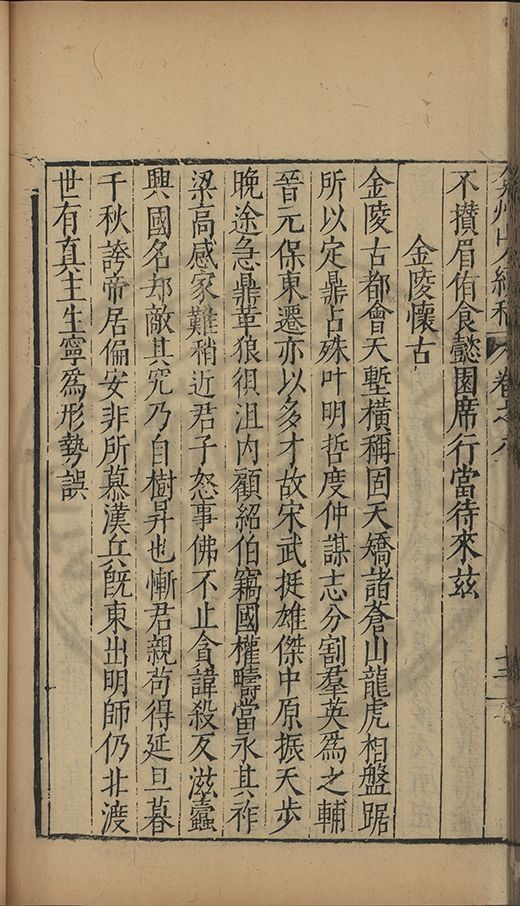 卷之八
不攅眉侑食懿園席行當待來玆
金陵懷古
金陵古都會天塹橫稱固天矯諸蒼山龍虎相盤踞
所以定鼎占殊叶明哲度仲謀志分割羣英爲之輔
晉元保東遷亦以多才故宋武挺雄傑中原振天步
晚途急鼎革狼狽沮內顧紹伯竊國權疇當永其祚
梁高感家難稍近君子怒事佛不止貪諱殺反滋蠹
興國名刼敵其究乃自樹昇也慚君親茍得延旦暮
千秋誇帝居偏安非所慕漢兵旣東出明師仍北渡
世有真主生寧爲形勢誤